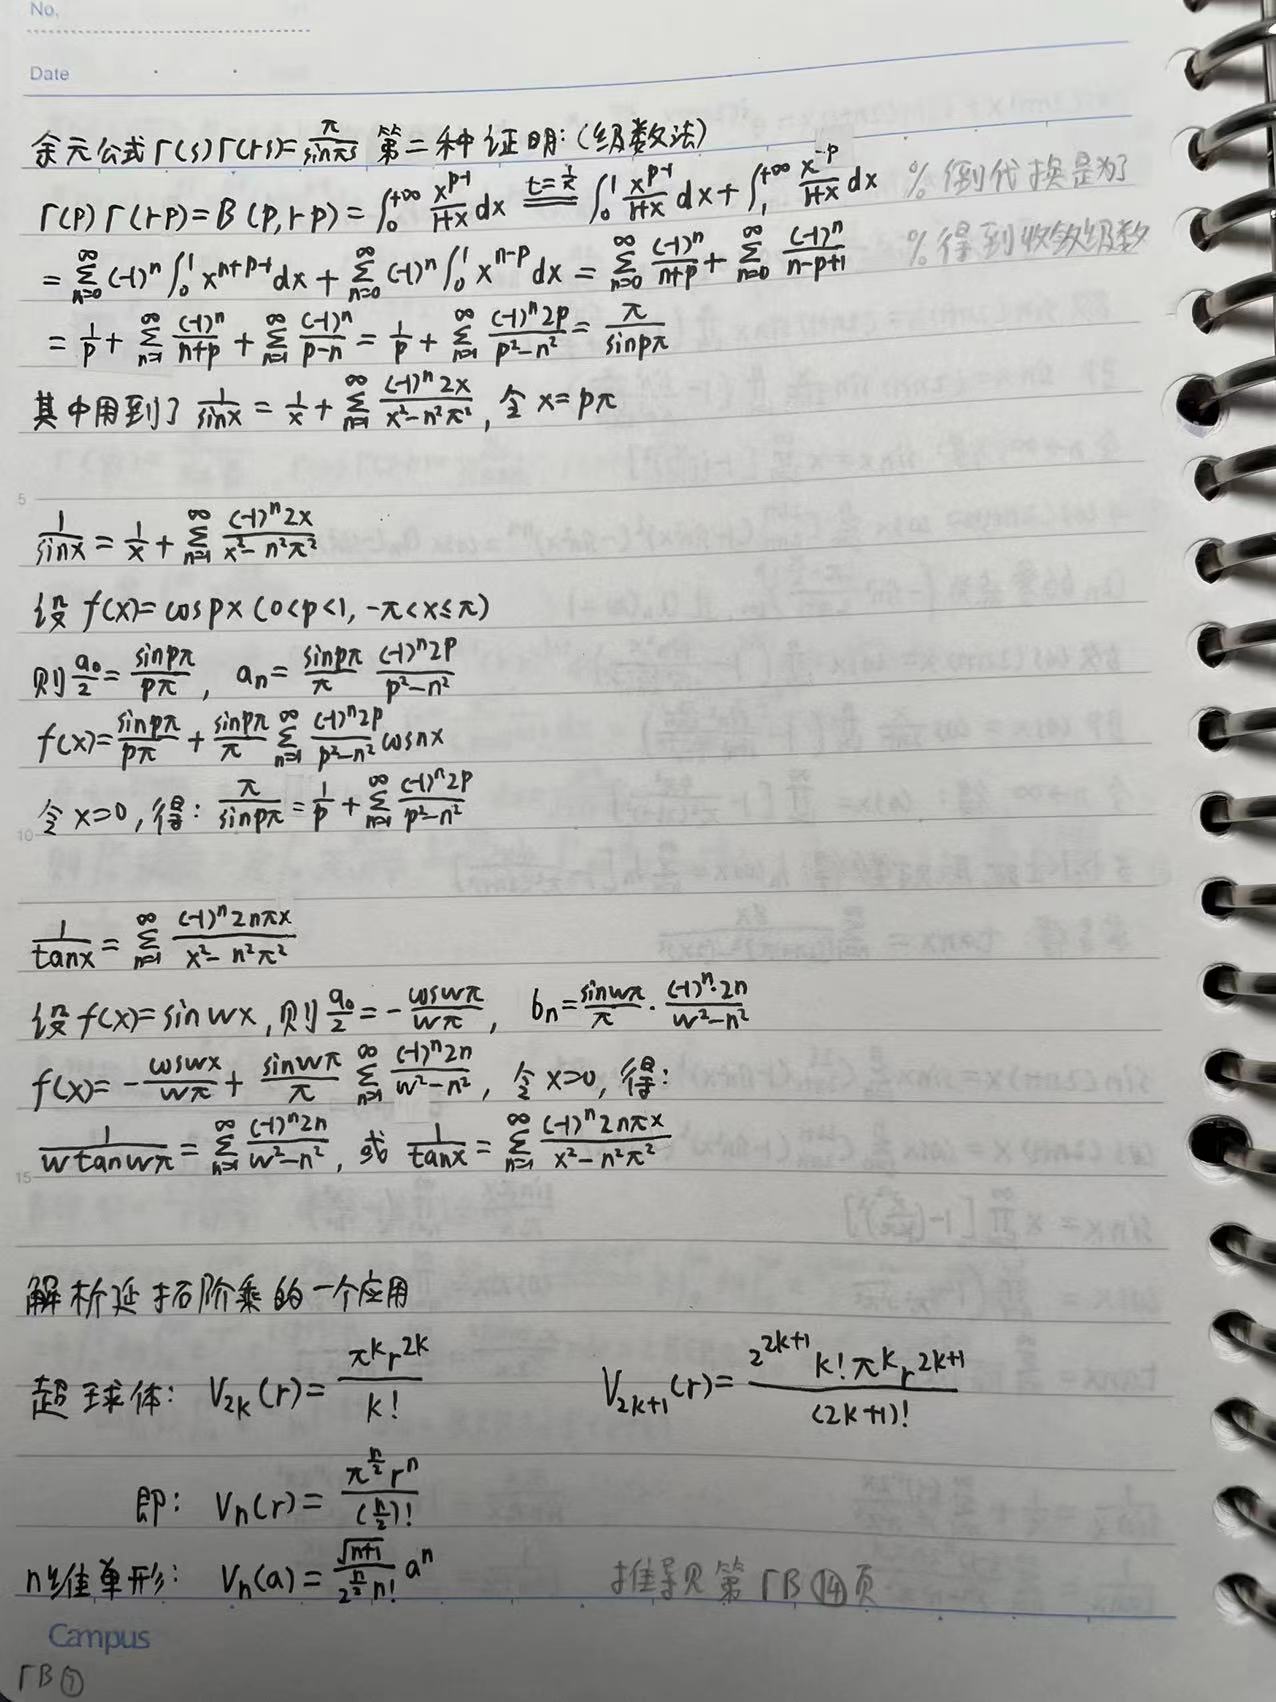 No.
Date
余元公式Γ(s)Γ(1-s)=π/sinπs 第二种证明:(级数法)
Γ(p)Γ(1-p)=B(p,1-p)=∫₀^{+∞} x^{p-1}/(1+x) dx \overset{t=1/x}{=} ∫₀^1 x^{p-1}/(1+x) dx+∫₁^{+∞} x^{-p}/(1+x) dx % 倒代换是为了
=∑_{n=0}^∞ (-1)^n∫₀^1 x^{n+p-1}dx+∑_{n=0}^∞ (-1)^n∫₀^1 x^{n-p}dx=∑_{n=0}^∞ (-1)^n/(n+p)+∑_{n=0}^∞ (-1)^n/(n-p+1) % 得到收敛级数
=1/p+∑_{n=1}^∞ (-1)^n/(n+p)+∑_{n=1}^∞ (-1)^n/(p-n)=1/p+∑_{n=1}^∞ (-1)^n 2p/(p²-n²)=π/sinpπ
其中用到了 1/sinx=1/x+∑_{n=1}^∞ (-1)^n 2x/(x²-n²π²), 令 x=pπ
5
1/sinx=1/x+∑_{n=1}^∞ (-1)^n 2x/(x²-n²π²)
设 f(x)=cospx(0<p<1, -π<x≤π)
则 a₀/2=sinpπ/pπ, aₙ=sinpπ/π (-1)^n 2p/(p²-n²)
f(x)=sinpπ/pπ+sinpπ/π ∑_{n=1}^∞ (-1)^n 2p/(p²-n²) cosnx
令 x=0, 得: π/sinpπ=1/p+∑_{n=1}^∞ (-1)^n 2p/(p²-n²)
10
1/tanx=∑_{n=1}^∞ (-1)^n 2nπx/(x²-n²π²)
设 f(x)=sinwx, 则 a₀/2=-coswπ/wπ, bₙ=sinwπ/π·(-1)^n·2n/(w²-n²)
f(x)=-coswx/wπ+sinwπ/π ∑_{n=1}^∞ (-1)^n 2n/(w²-n²), 令 x=0, 得:
1/(w tanwπ)=∑_{n=1}^∞ (-1)^n 2n/(w²-n²), 或 1/tanx=∑_{n=1}^∞ (-1)^n 2nπx/(x²-n²π²)
15
解析延拓阶乘的一个应用
超球体: V_{2k}(r)=π^k r^{2k}/k! V_{2k+1}(r)=2^{2k+1} k! π^k r^{2k+1}/(2k+1)!
即: Vₙ(r)=π^{n/2} r^n/(n/2)!
n维单形: Vₙ(a)=√(n+1)/(2^{n/2} n!) a^n 推导见第ΓB⑭页
Campus
ΓB⑦